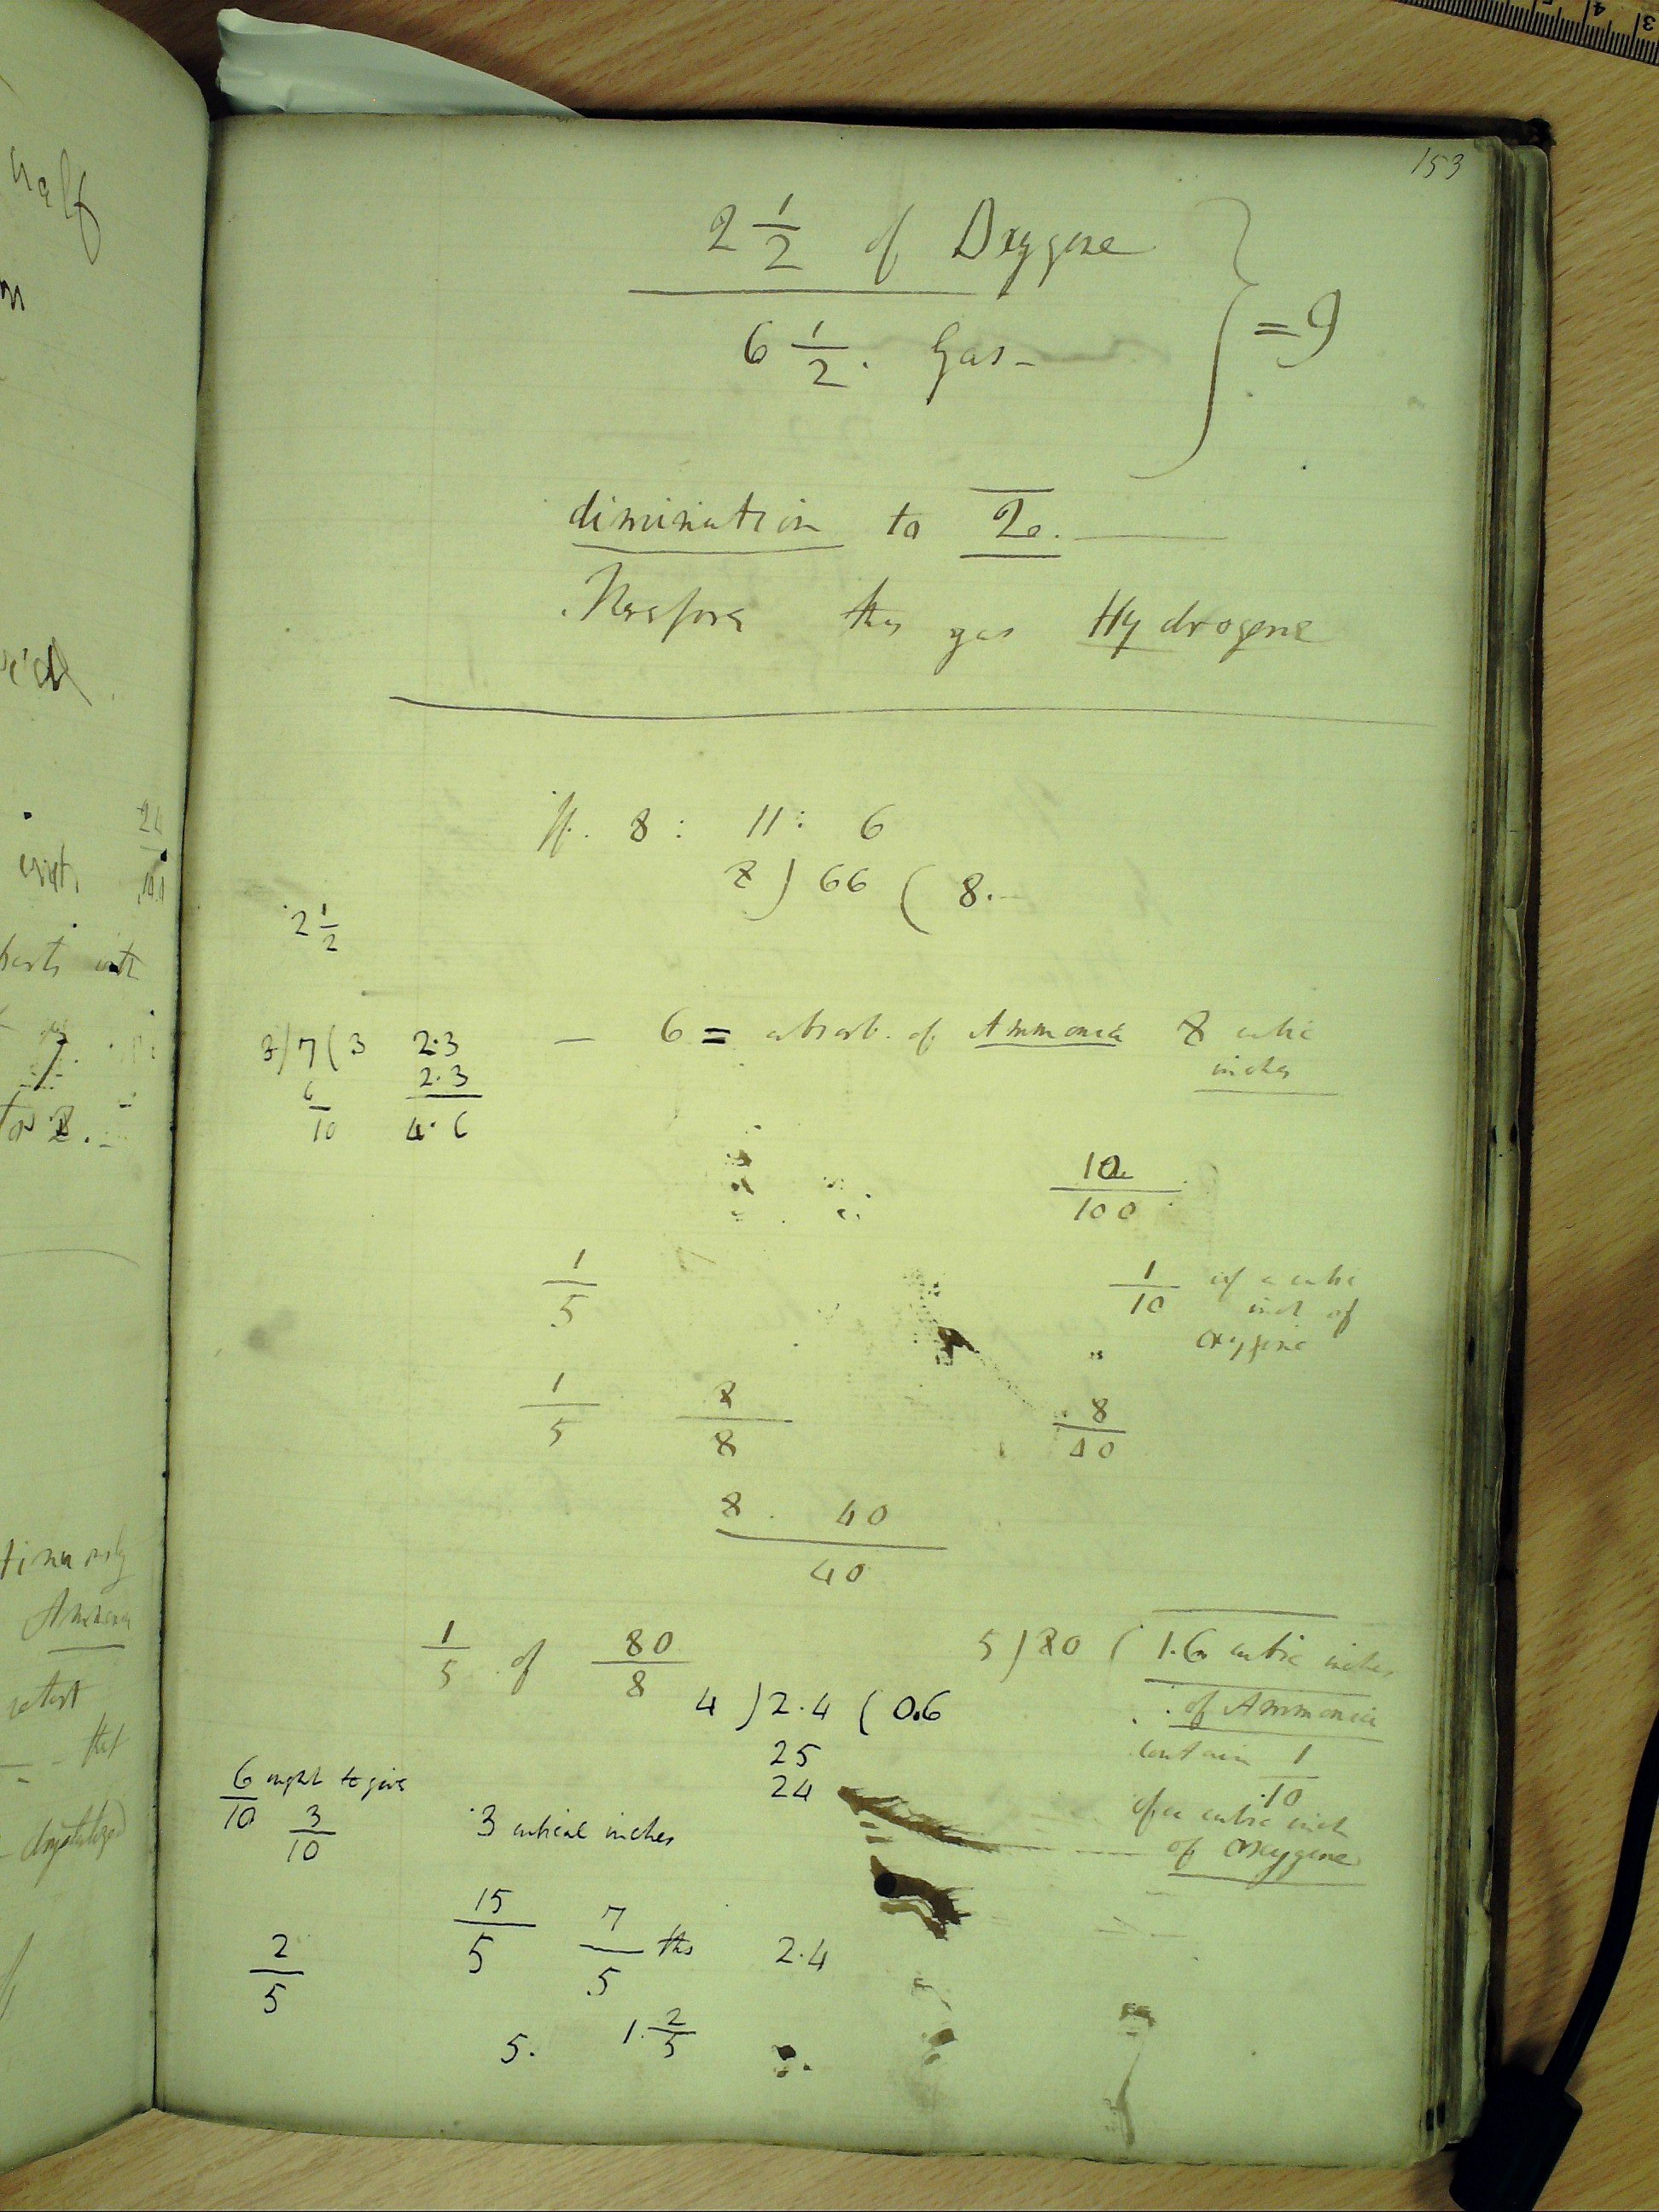 153
2 1/2 of Oxygene
6 1/2. Gas -
} = 9
diminution to 2.
Therefore this gas Hydrogene
If. 8 : 11 : 6
8 ) 66 ( 8.
2 1/2
3/ 7 ( 3 2.3
6 2.3
10 4.6
— 6 = absorb. of Ammonia 8 cubic
inches
10/100
1/5 1/10 of a cubic
inch of
oxygene
1/5 8/8 8/40
8. 40
40
1/5 of 80/8 5 ) 80 ( 1.6 cubic inches
4 ) 2.4 ( 0.6 of Ammonia
25 contain 1/10
24 of a cubic inch
of oxygene
6/10 ought to give
3/10 3 cubical inches
15/5 7/5 ths 2.4
2/5
5. 1. 2/5
half
parts with
Ammonia
retort
that